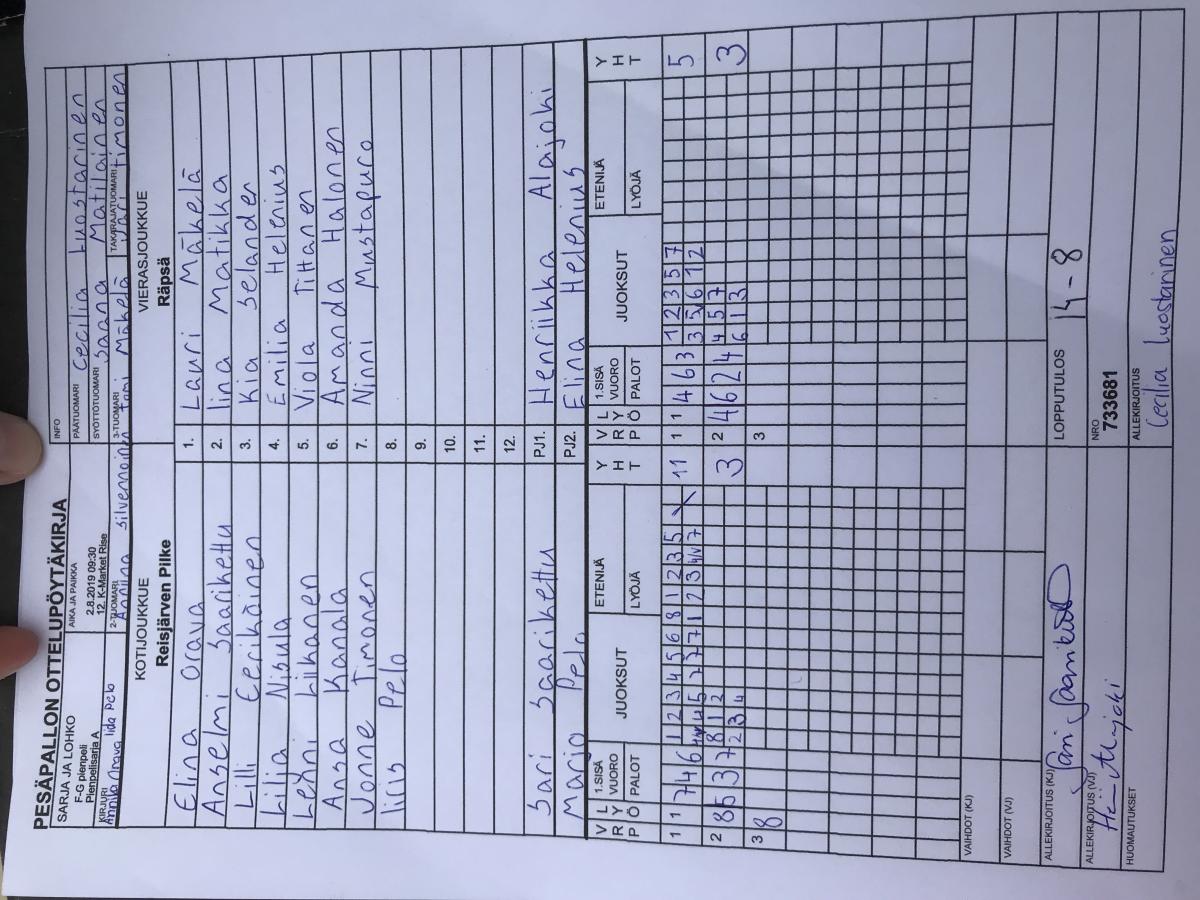 PESÄPALLON OTTELUPÖYTÄKIRJA
SARJA JA LOHKO
F-G pienpeli
Pienpelisarja A
AIKA JA PAIKKA
2.8.2019 09:30
12. K-Market Rise
INFO
PÄÄTUOMARI Cecilia Luostarinen
SYÖTTÖTUOMARI Saana Matilainen
KIRJURI Iida Pelo
2-TUOMARI Silvennoinen
3-TUOMARI Tomi Mäkelä
TAKARAJATUOMARI Timonen
KOTIJOUKKUE
Reisjärven Pilke
VIERASJOUKKUE
Räpsä
Elina Orava 1. Lauri Mäkelä
Anselmi Saarikettu 2. Iina Matikka
Lilli Eerikäinen 3. Kia Selander
Lilia Nisula 4. Emilia Helenius
Lexni Liikanen 5. Viola Tiittanen
Ansa Kannala 6. Amanda Halonen
Jonne Timonen 7. Ninni Mustapuro
Iiris Pelo 8.
9.
10.
11.
12.
Sari Saarikettu PJ1. Henriikka Alajoki
Marjo Pelo PJ2. Elina Helenius
V R P L Y Ö 1.SISÄ VUORO PALOT JUOKSUT ETENIJÄ LYÖJÄ Y H T V R P L Y Ö 1.SISÄ VUORO PALOT JUOKSUT ETENIJÄ LYÖJÄ Y H T
1 1 7 4 6 1 2 3 4 5 6 8 1 2 3 5 11 1 1 4 6 3 1 2 3 5 7 5
4 5 7 7 7 1 2 3 7 3 5 6 1 2
2 8 5 3 7 8 1 2 3 2 4 6 2 4 4 5 7 3
2 3 4 6 1 3
3 8 3
VAIHDOT (KJ)
VAIHDOT (VJ)
ALLEKIRJOITUS (KJ) Sari Saarikettu
LOPPUTULOS 14-8
ALLEKIRJOITUS (VJ)
NRO
733681
HUOMAUTUKSET
ALLEKIRJOITUS
Cecilia Luostarinen